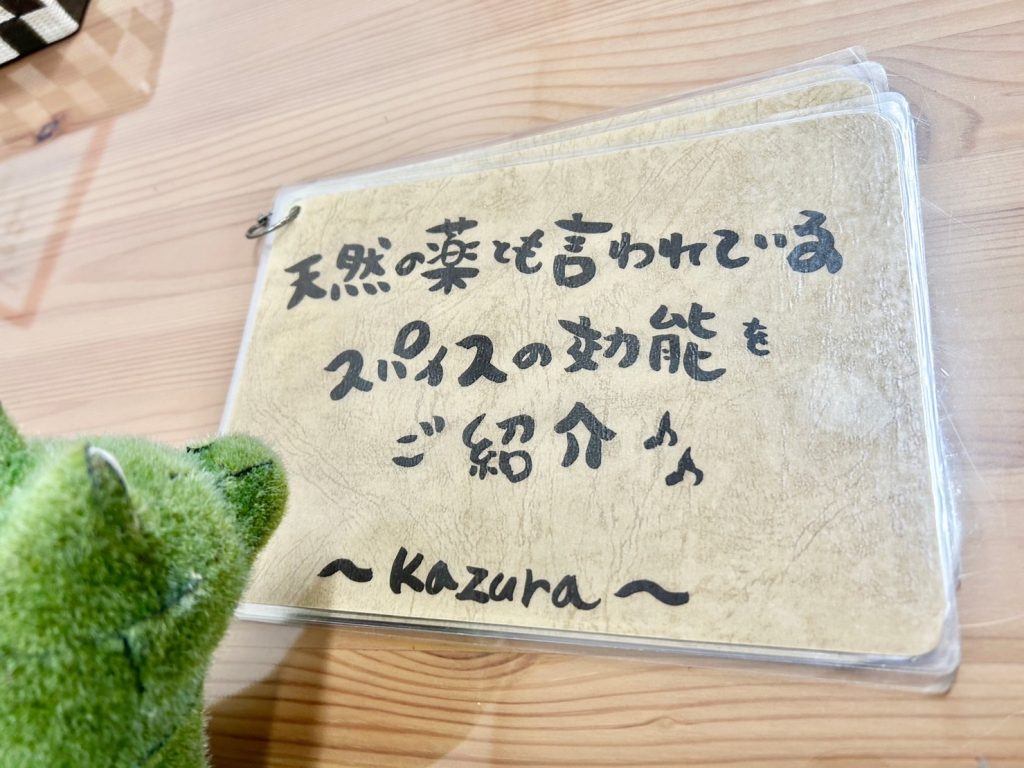 天然の薬とも言われている
スパイスの効能を
ご紹介♪♪
～Kazura～